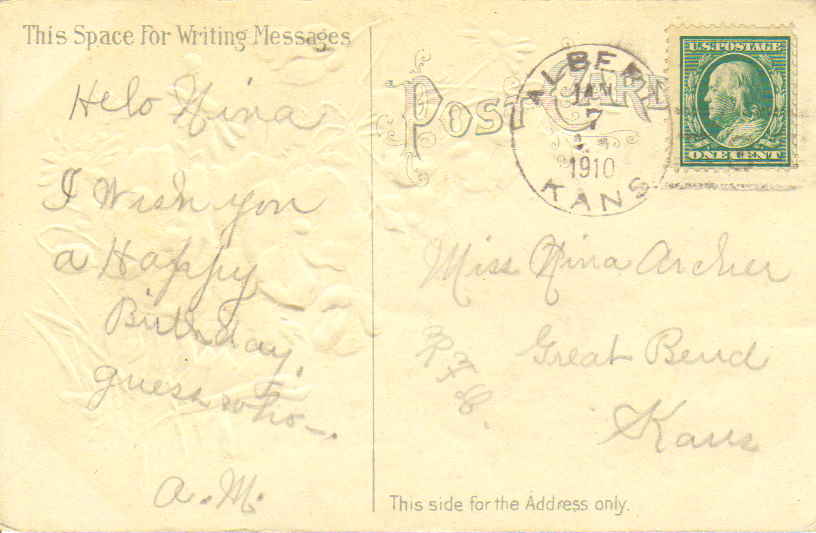 This Space For Writing Messages
Helo Nina
I Wish you
a Happy
Birthday.
guess who—.
A. M.
POST CARD
ALBERT
JAN
7
1910
KANS
U.S. POSTAGE
ONE CENT
Miss Nina Archer
Great Bend
Kans
This side for the Address only.